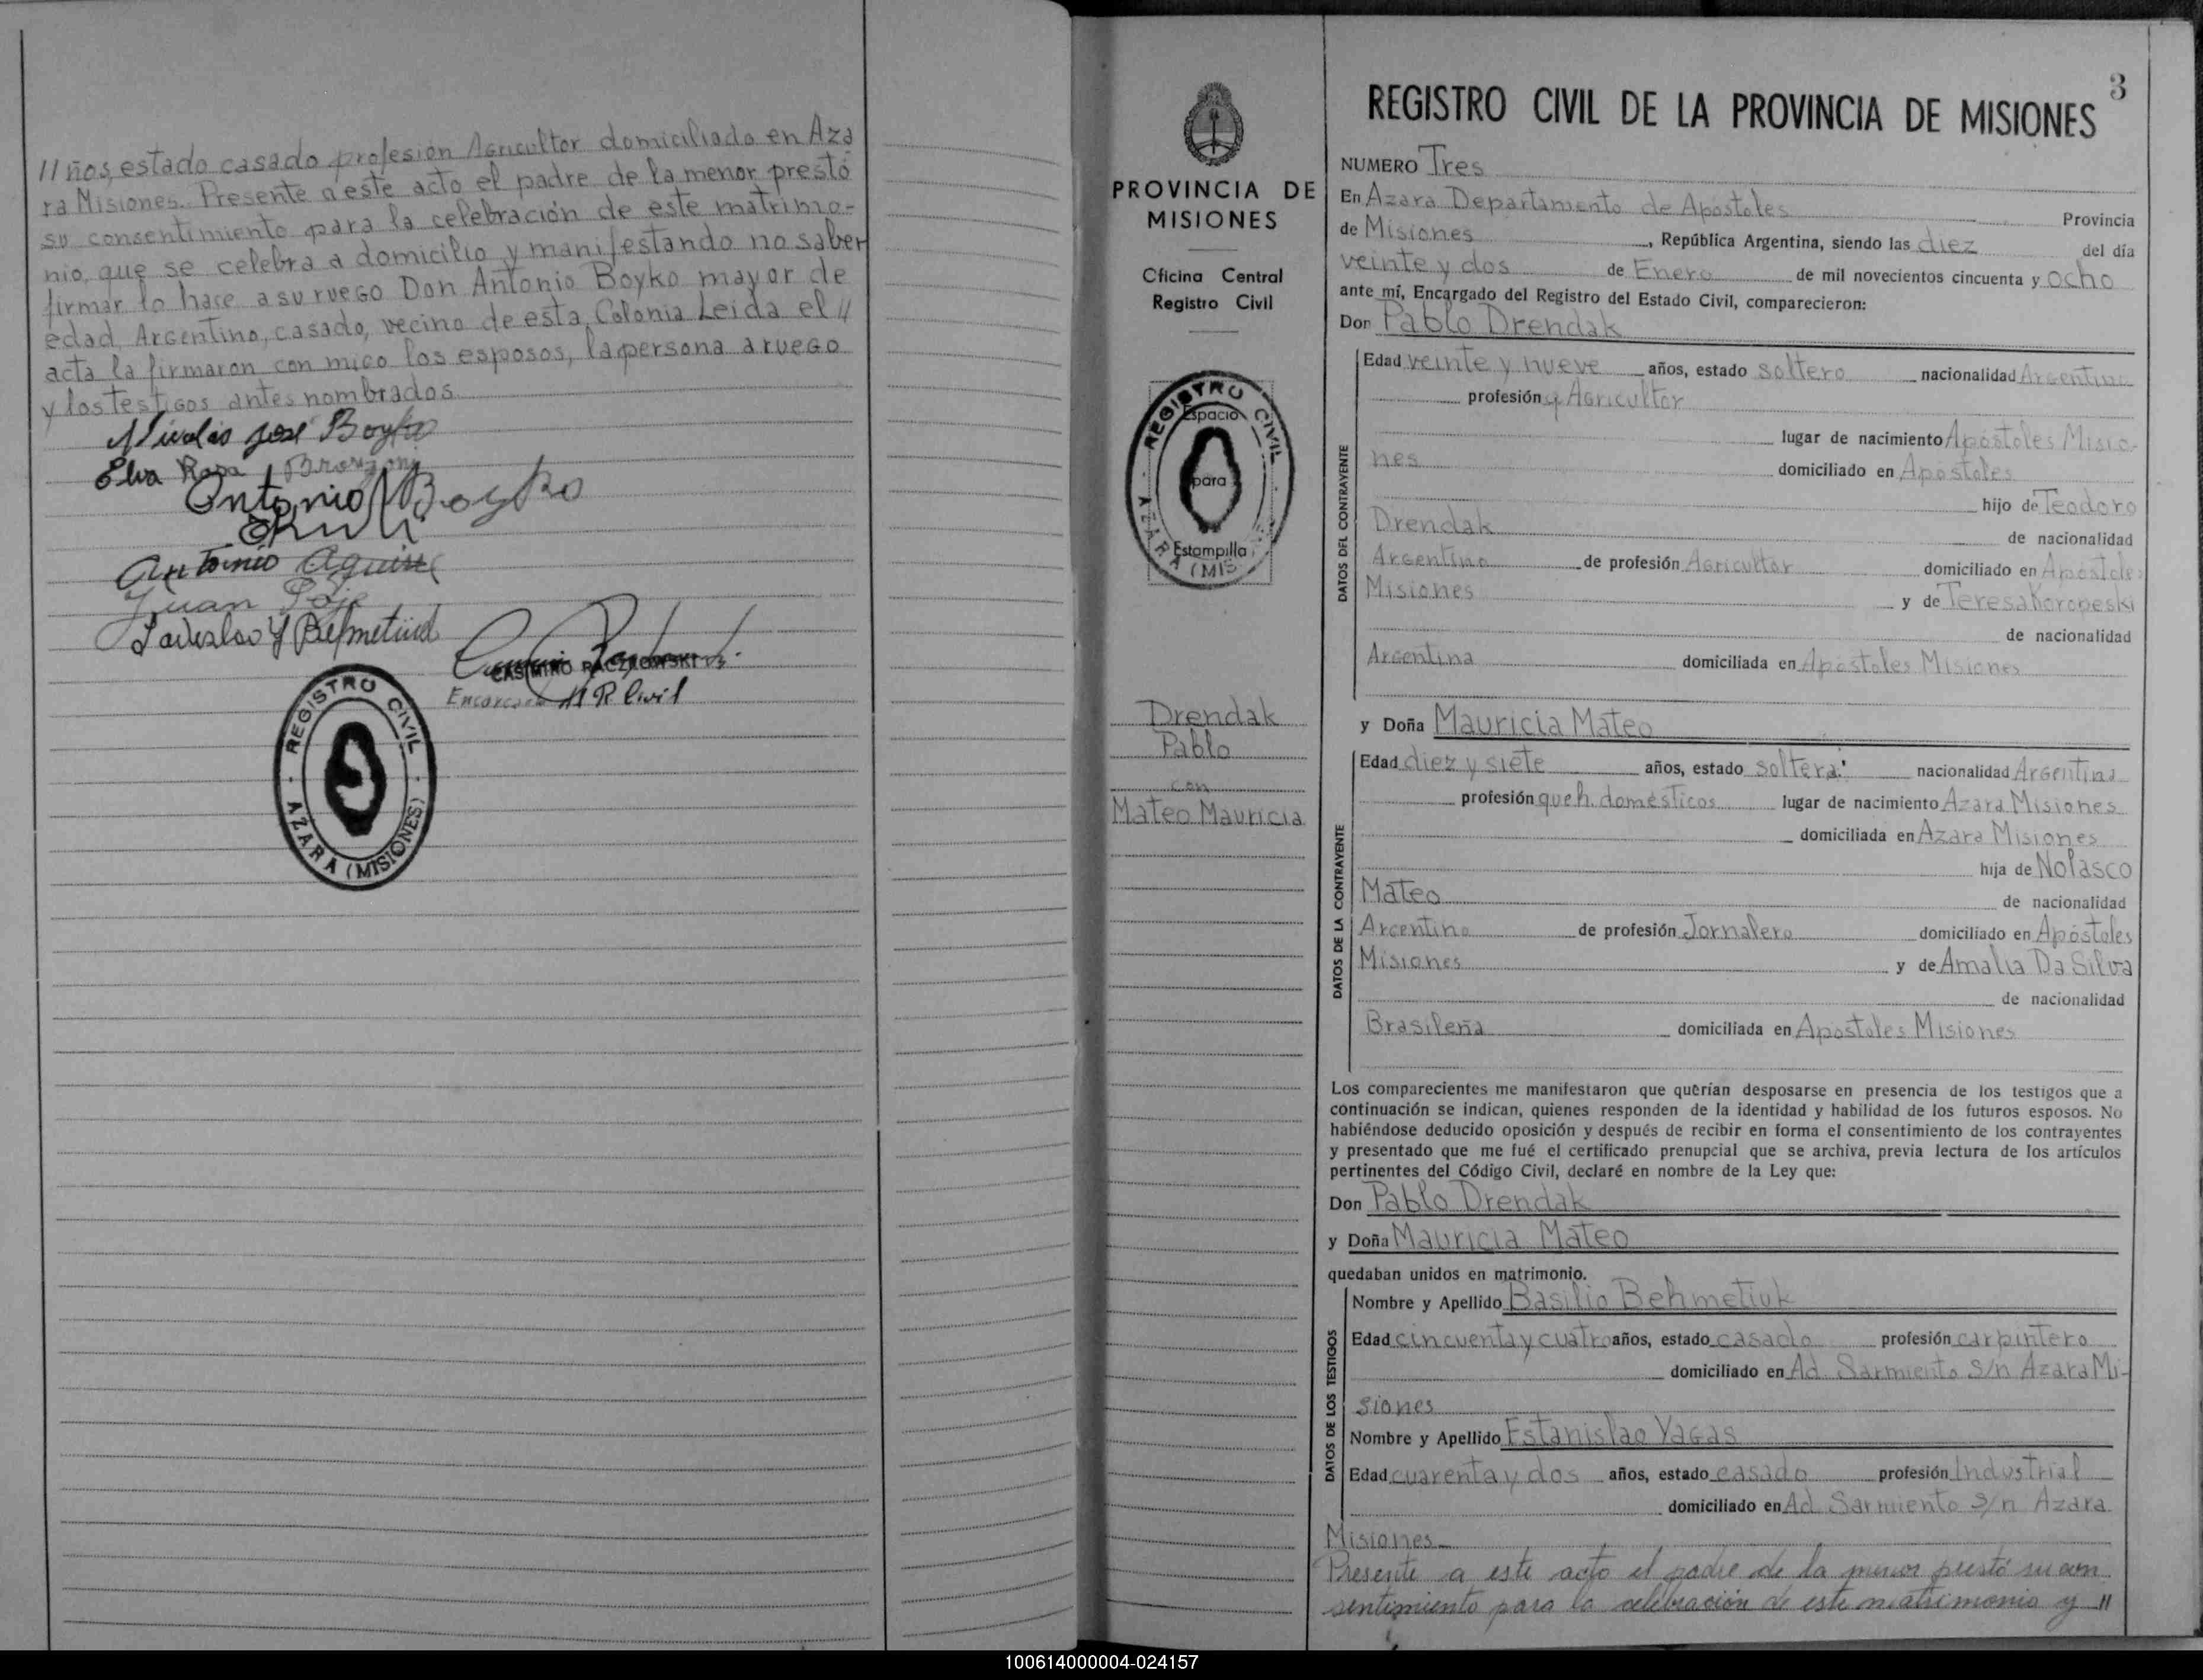 // ños, estado casado profesión Agricultor domiciliado en Aza
ra Misiones. Presente a este acto el padre de la menor prestó
su consentimiento para la celebración de este matrimo-
nio, que se celebra a domicilio y manifestando no saber
firmar lo hace a su ruego Don Antonio Boyko mayor de
edad, Argentino, casado, vecino de esta Colonia Leida el //
acta la firmaron con migo los esposos, la persona a ruego
y los testigos antes nombrados
Nicolás José Boyko
Elva Rosa
Antonio Boyko
Antonio Aguirre
Juan
Ladislao
CASIMIRO PACZKOWSKI
Encargado R. Civil
REGISTRO CIVIL
AZARA (MISIONES)
PROVINCIA DE
MISIONES
Oficina Central
Registro Civil
REGISTRO CIVIL
AZARA (MIS
Espacio
para
Estampilla
Drendak
Pablo
con
Mateo Mauricia
3
REGISTRO CIVIL DE LA PROVINCIA DE MISIONES
NUMERO Tres
En Azara Departamento de Apóstoles Provincia
de Misiones, República Argentina, siendo las diez del día
veinte y dos de Enero de mil novecientos cincuenta y ocho
ante mí, Encargado del Registro del Estado Civil, comparecieron:
Don Pablo Drendak
DATOS DEL CONTRAYENTE
Edad veinte y nueve años, estado soltero nacionalidad Argentina
profesión Agricultor
lugar de nacimiento Apóstoles Misio-
nes domiciliado en Apóstoles
hijo de Teodoro
Drendak de nacionalidad
Argentino de profesión Agricultor domiciliado en Apóstoles
Misiones y de Teresa Koropeski
de nacionalidad
Argentina domiciliada en Apóstoles Misiones
y Doña Mauricia Mateo
DATOS DE LA CONTRAYENTE
Edad diez y siete años, estado soltera nacionalidad Argentina
profesión queh. domésticos lugar de nacimiento Azara Misiones
domiciliada en Azara Misiones
hija de Nolasco
Mateo de nacionalidad
Argentino de profesión Jornalero domiciliado en Apóstoles
Misiones y de Amalia Da Silva
de nacionalidad
Brasileña domiciliada en Apóstoles Misiones
Los comparecientes me manifestaron que querían desposarse en presencia de los testigos que a
continuación se indican, quienes responden de la identidad y habilidad de los futuros esposos. No
habiéndose deducido oposición y después de recibir en forma el consentimiento de los contrayentes
y presentado que me fué el certificado prenupcial que se archiva, previa lectura de los artículos
pertinentes del Código Civil, declaré en nombre de la Ley que:
Don Pablo Drendak
y Doña Mauricia Mateo
quedaban unidos en matrimonio.
DATOS DE LOS TESTIGOS
Nombre y Apellido Basilio Behmetiuk
Edad cincuenta y cuatro años, estado casado profesión carpintero
domiciliado en Ad. Sarmiento s/n Azara Mi-
siones
Nombre y Apellido Estanislao Yagas
Edad cuarenta y dos años, estado casado profesión Industrial
domiciliado en Ad. Sarmiento s/n Azara
Misiones
Presente a este acto el padre de la menor prestó su con
sentimiento para la celebración de este matrimonio y //
100614000004-024157